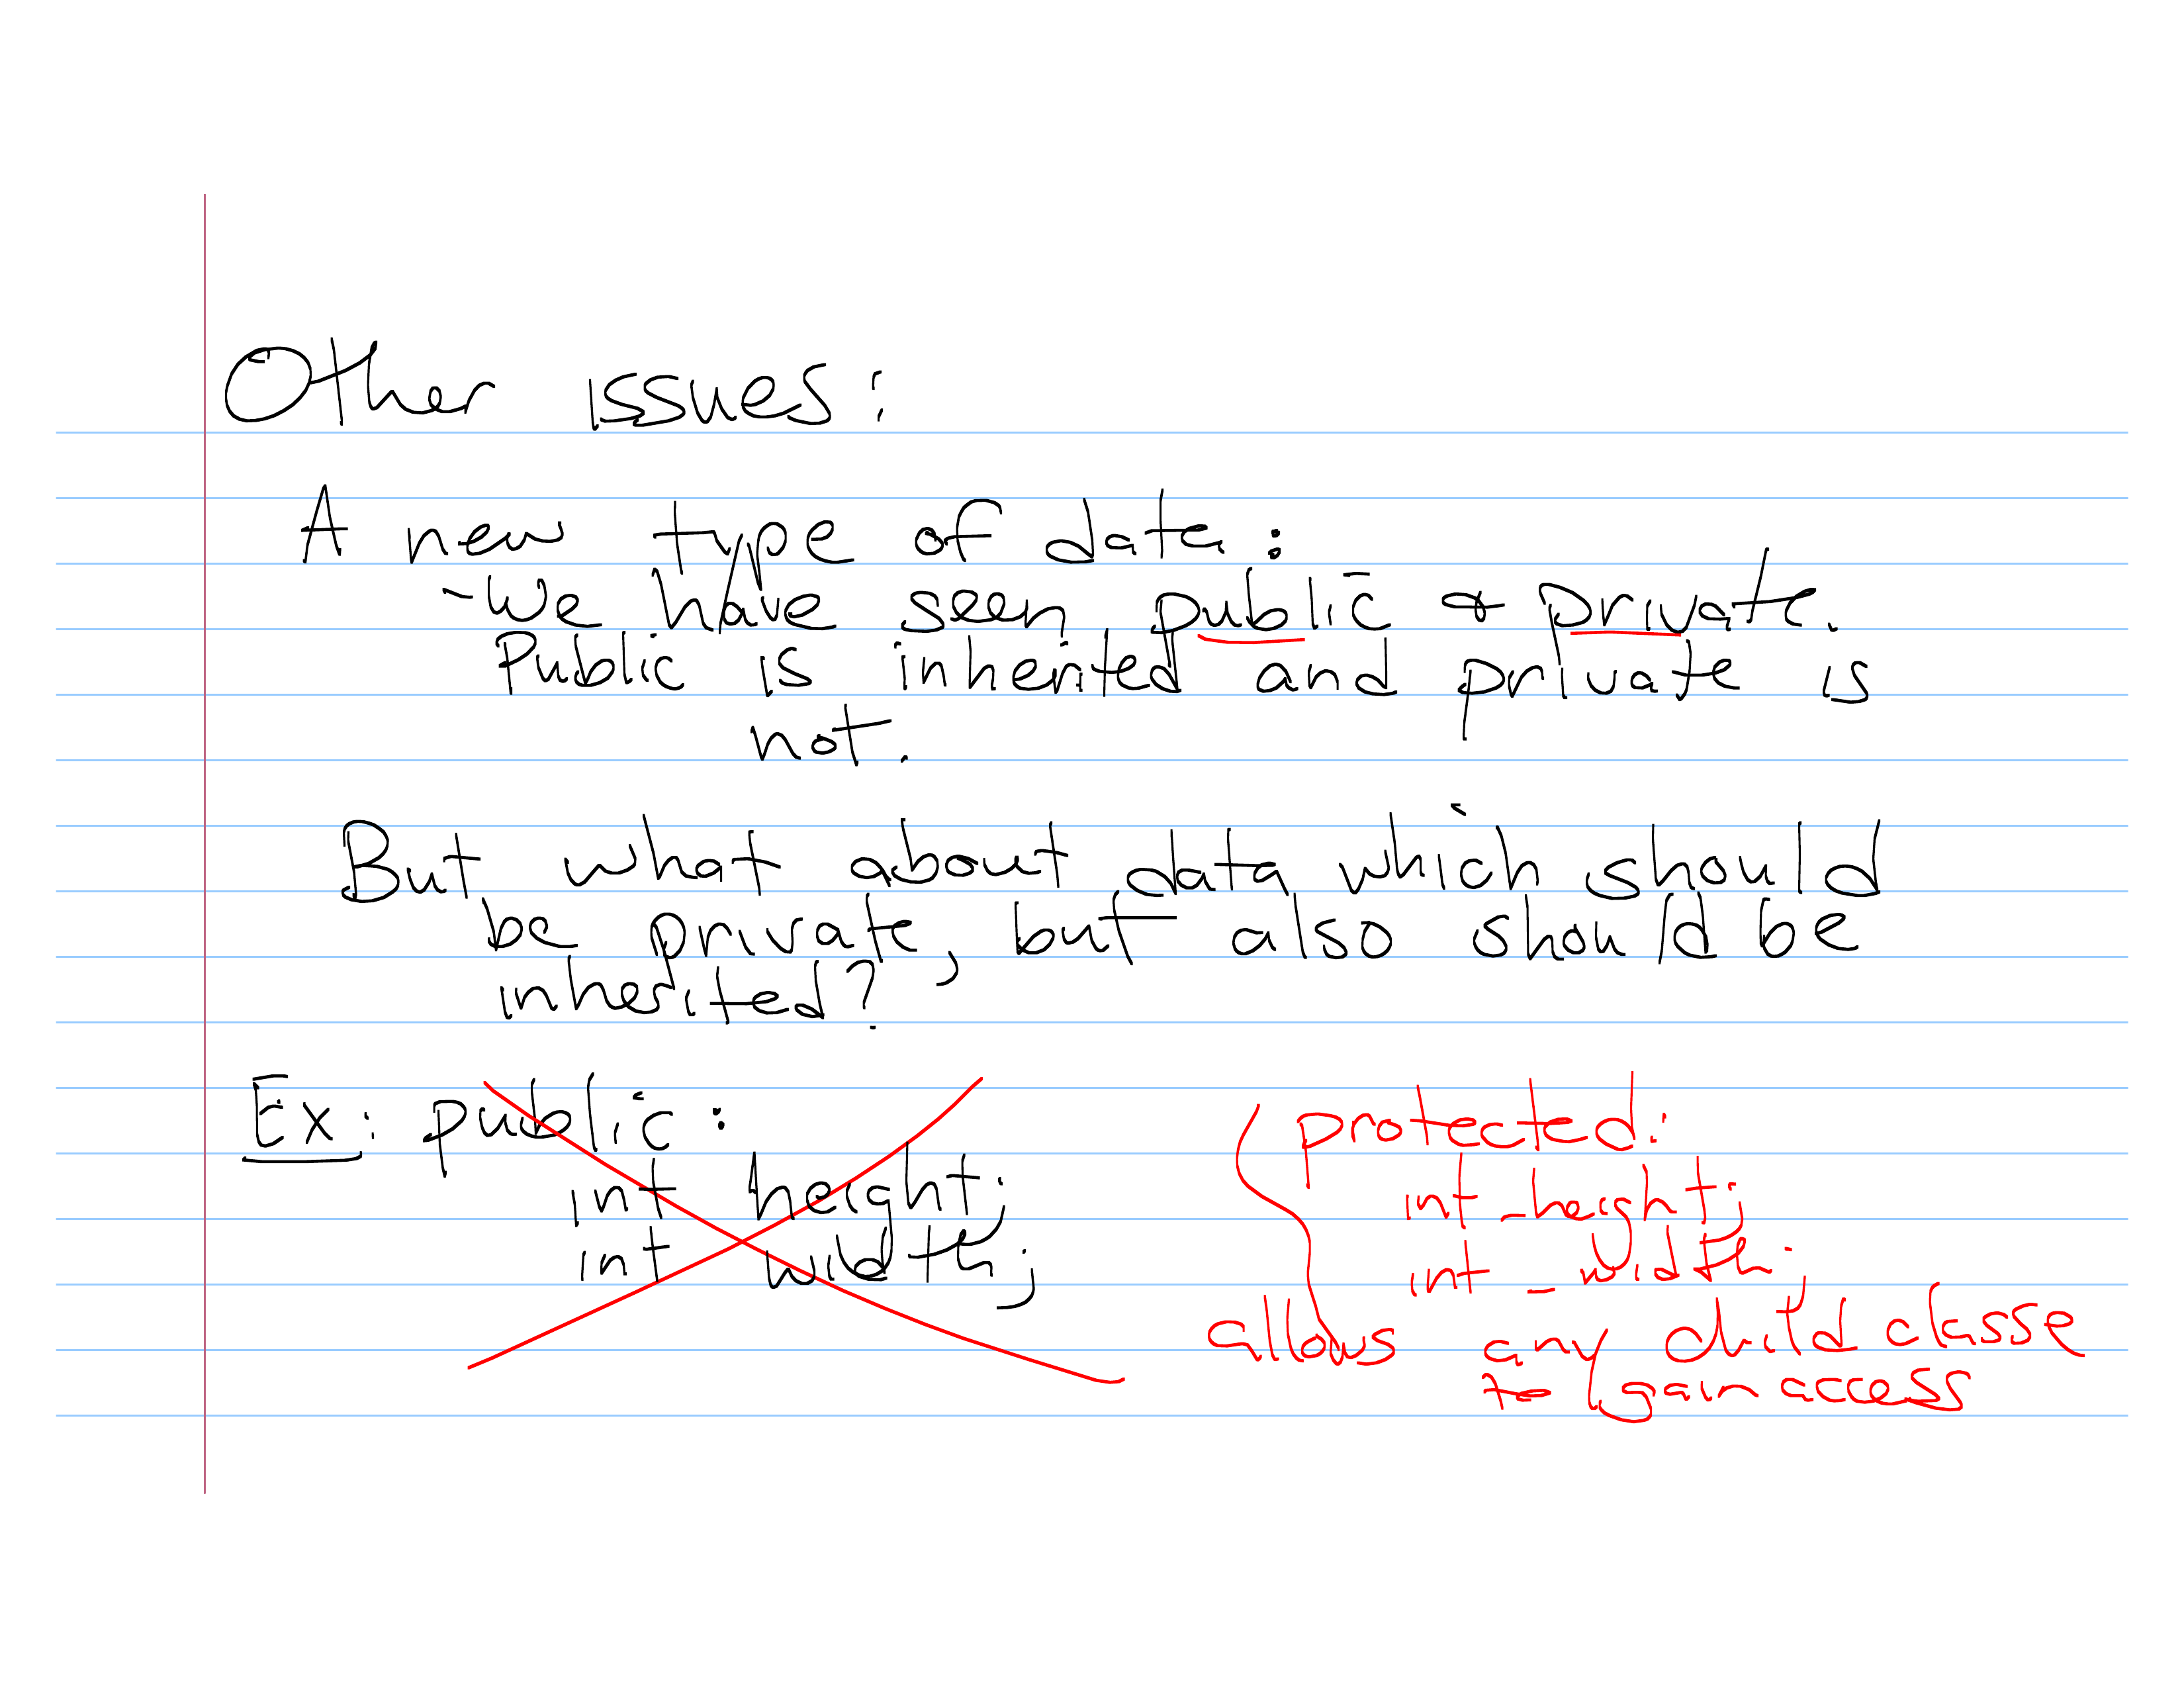 Other issues:
A new type of data:
- We have seen public + private.
Public is inherited and private is
not.
But what about data which should
be private, but also should be
inherited?
Ex: public:
int height;
int width;
protected:
int _height;
int _width;
allows any child class
to gain access